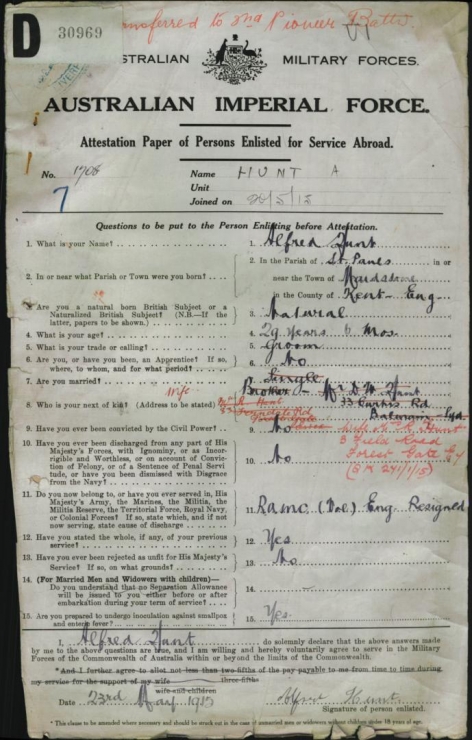 D 30969
Transferred to 2nd Pioneer Battn.
AUSTRALIAN MILITARY FORCES.
AUSTRALIAN IMPERIAL FORCE.
Attestation Paper of Persons Enlisted for Service Abroad.
No. 1706 Name HUNT A
7 Unit
Joined on 26/5/15
Questions to be put to the Person Enlisting before Attestation.
1. What is your Name? 1. Alfred Hunt
2. In or near what Parish or Town were you born? 2. In the Parish of St. Pauls in or
near the Town of Maidstone
in the County of Kent Eng
3. Are you a natural born British Subject or a
Naturalized British Subject? (N.B.—If the
latter, papers to be shown.) 3. Natural
4. What is your age? 4. 29 years 6 Mos.
5. What is your trade or calling? 5. Groom
6. Are you, or have you been, an Apprentice? If so,
where, to whom, and for what period? 6. No
7. Are you married? 7. Single
8. Who is your next of kin? (Address to be stated) Wife 8. Brother Mr D. W. Hunt
33 Rd
9. Have you ever been convicted by the Civil Power? 9. No Wife Mrs R. Hunt
3 Field Road
Forest Gate
10. Have you ever been discharged from any part of His
Majesty's Forces, with Ignominy, or as Incor-
rigible and Worthless, or on account of Convic-
tion of Felony, or of a Sentence of Penal Servi-
tude, or have you been dismissed with Disgrace
from the Navy? 10. No
11. Do you now belong to, or have you ever served in, His
Majesty's Army, the Marines, the Militia, the
Militia Reserve, the Territorial Force, Royal Navy,
or Colonial Forces? If so, state which, and if not
now serving, state cause of discharge 11. RAMC (Vol) Eng Resigned
12. Have you stated the whole, if any, of your previous
service? 12. Yes
13. Have you ever been rejected as unfit for His Majesty's
Service? If so, on what grounds? 13. No
14. (For Married Men and Widowers with children)—
Do you understand that no Separation Allowance
will be issued to you either before or after
embarkation during your term of service? 14. –
15. Are you prepared to undergo inoculation against smallpox
and enteric fever? 15. Yes.
I, Alfred Hunt do solemnly declare that the above answers made
by me to the above questions are true, and I am willing and hereby voluntarily agree to serve in the Military
Forces of the Commonwealth of Australia within or beyond the limits of the Commonwealth.
*And I further agree to allot not less than two-fifths of the pay payable to me from time to time during
three-fifths
my service for the support of my wife
wife and children
Date 23rd May 1915 Alfred Hunt
Signature of person enlisted.
* This clause to be amended where necessary and should be struck out in the case of unmarried men or widowers without children under 18 years of age.